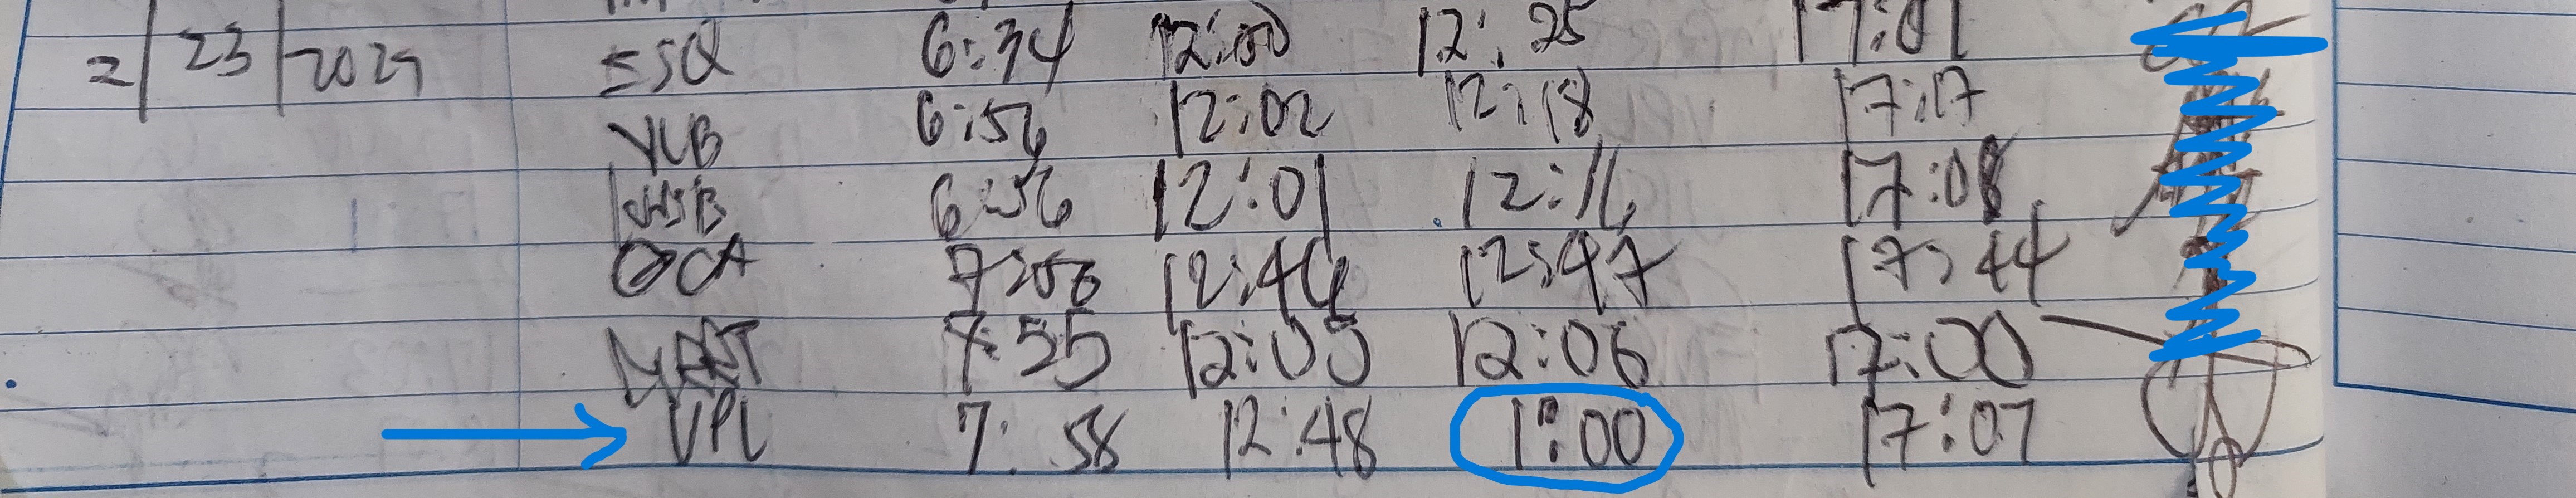 2/23/2025 SSQ 6:34 12:00 12:25 17:01
YCB 6:56 12:02 12:18 17:17
6:56 12:01 12:16 17:08
OCA 7:56 12:44 12:47 17:44
7:55 12:05 12:06 17:00
VPL 7:58 12:48 1:00 17:07